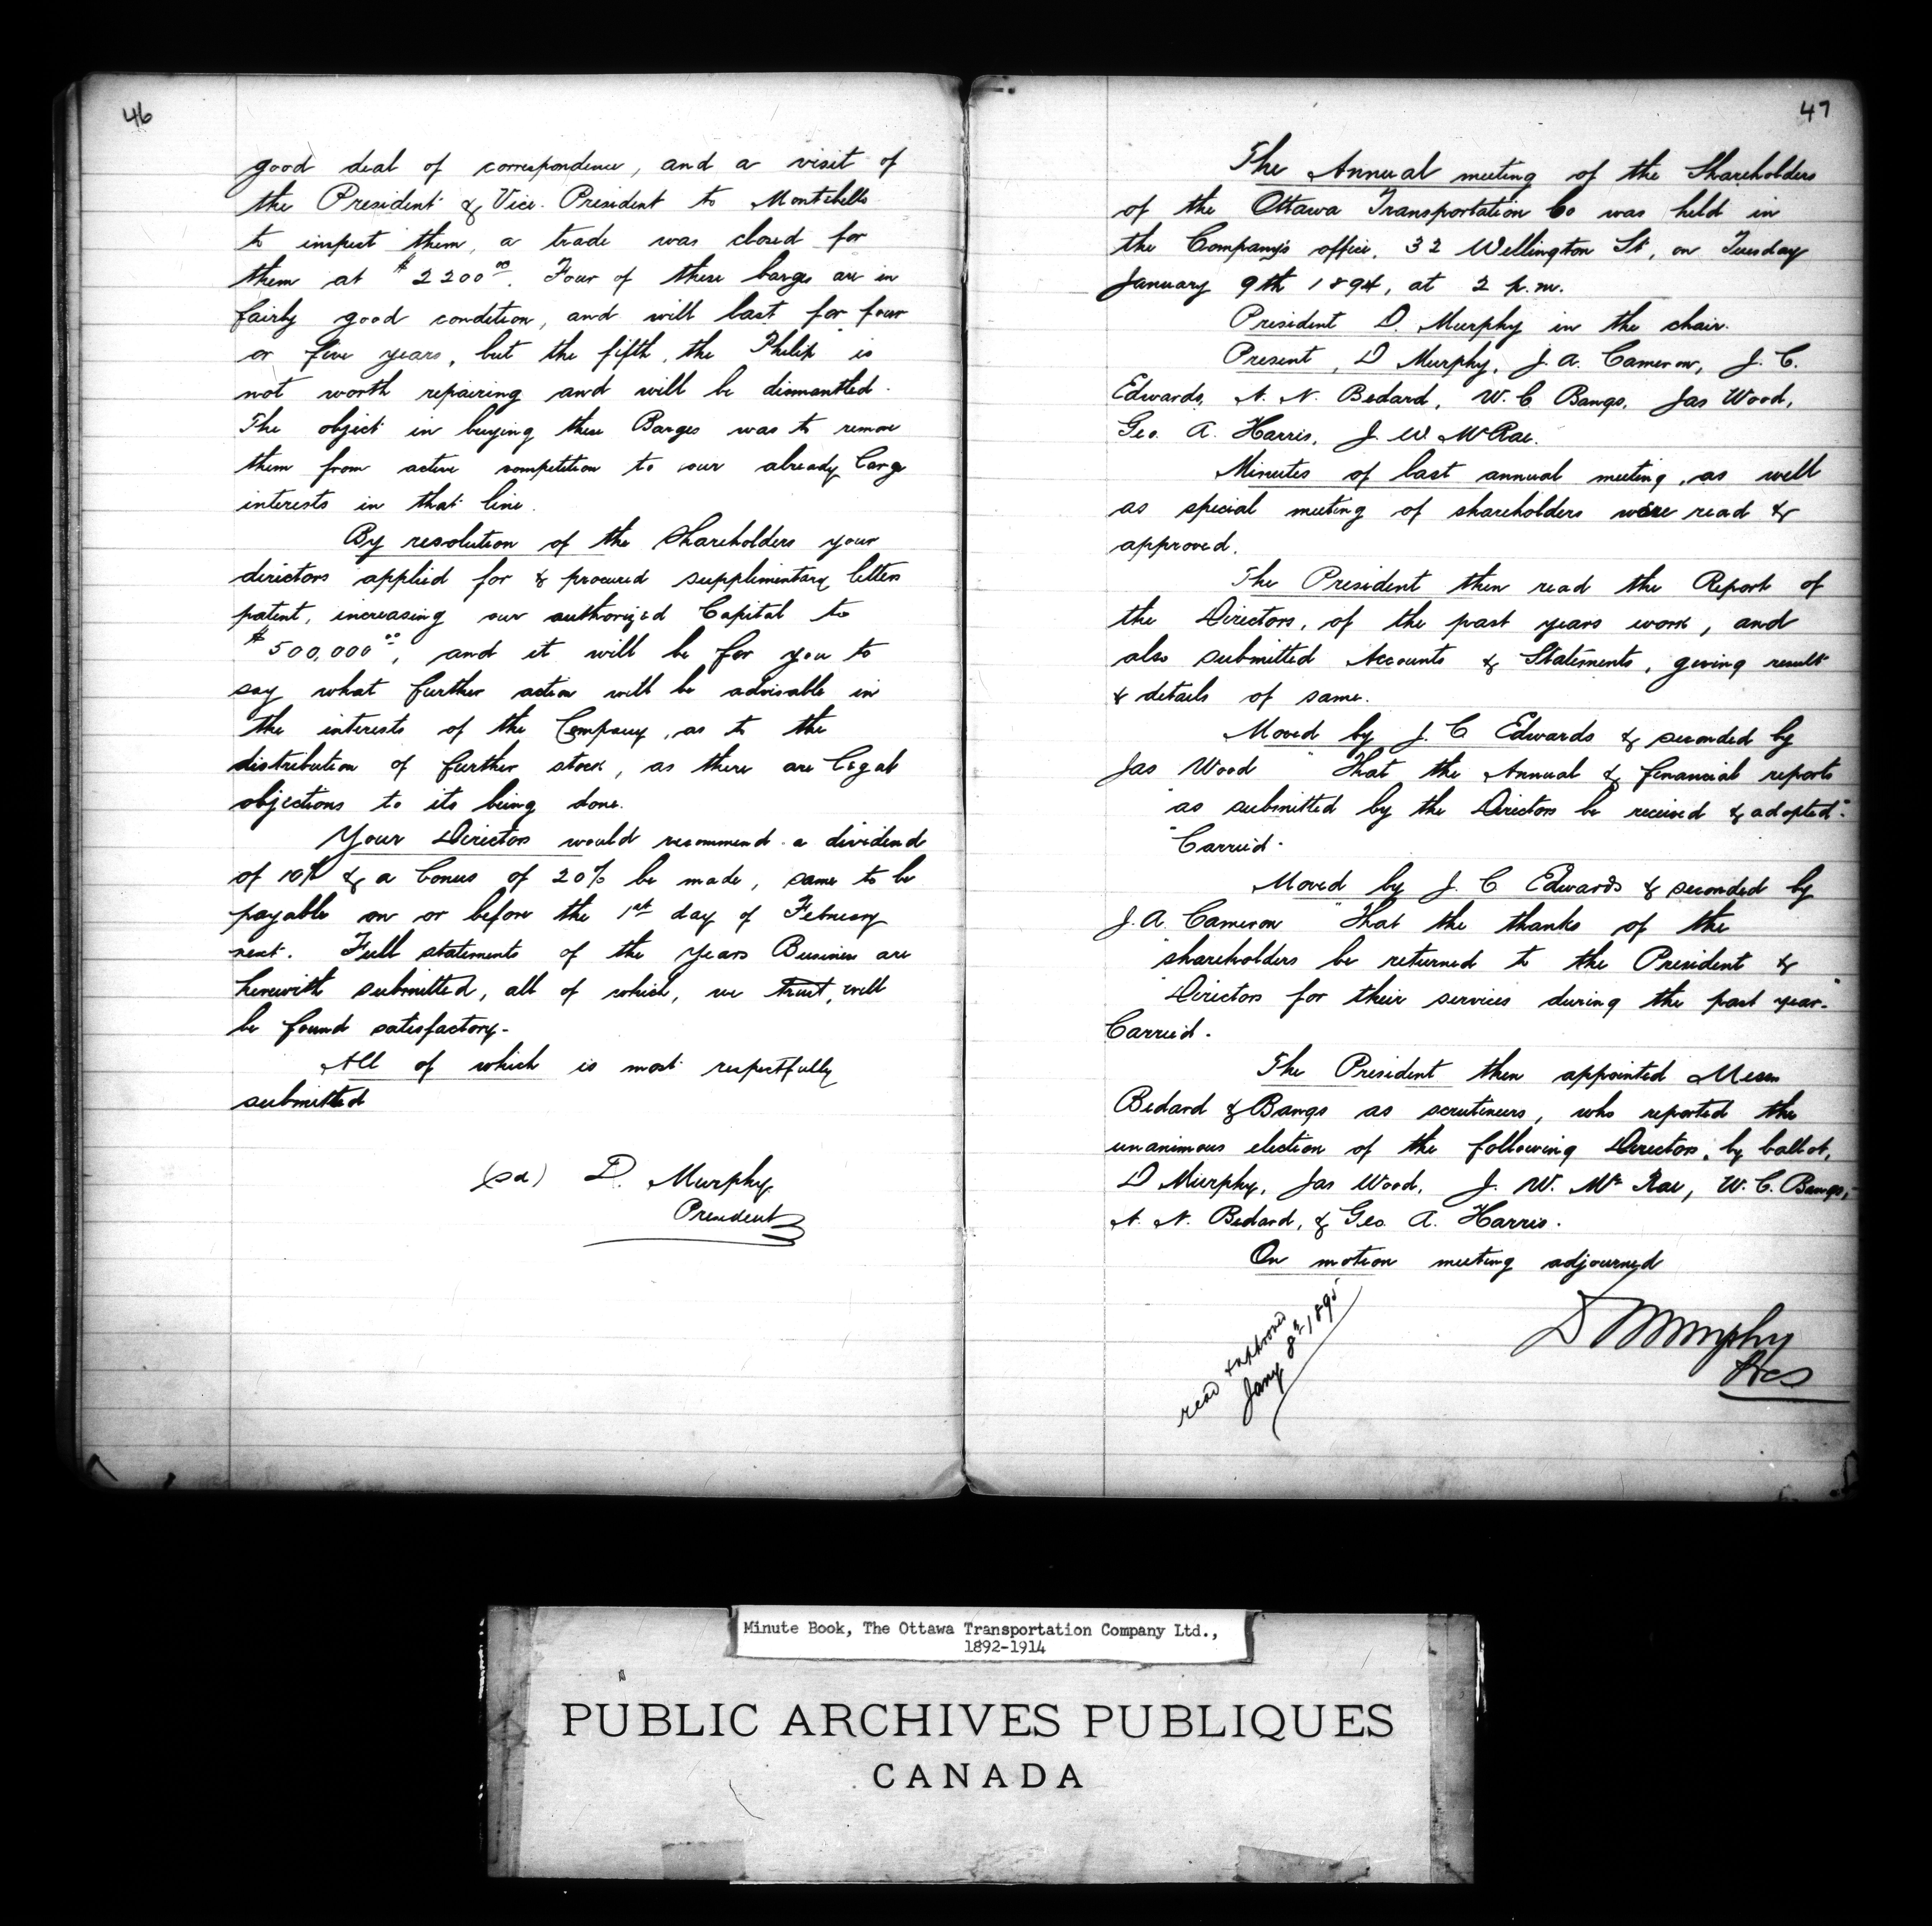 46
good deal of correspondence, and a visit of
the President & Vice. President to Montebello
to inspect them, a trade was closed for
them at $2200.00. Four of these barges are in
fairly good condition, and will last for four
or five years, but the fifth, the "Philip" is
not worth repairing and will be dismantled.
The object in buying these Barges was to remove
them from active competition to our already large
interests in that line.
By resolution of the Shareholders your
directors applied for & procured supplimentary letters
patent, increasing our authorized Capital to
$500,000.00, and it will be for you to
say what further action will be advisable in
the interests of the Company, as to the
distribution of further stock, as there are legal
objections to its being done.
Your Directors would recommend a dividend
of 10% & a bonus of 20% be made, same to be
payable on or before the 1st day of February
next. Full statements of the years Business are
herewith submitted, all of which, we trust, will
be found satisfactory.
All of which is most respectfully
submitted
(sd) D. Murphy
President
47
The Annual meeting of the Shareholders
of the Ottawa Transportation Co was held in
the Company's office, 32 Wellington St, on Tuesday
January 9th 1894, at 2 p.m.
President D. Murphy in the chair.
Present, D Murphy, J. A. Cameron, J. C.
Edwards, N. N. Bedard, W. C Bangs, Jas Wood,
Geo. A. Harris, J. W. McRae.
Minutes of last annual meeting, as well
as special meeting of shareholders were read &
approved.
The President then read the Report of
the Directors, of the past years work, and
also submitted Accounts & Statements, giving result
& details of same.
Moved by J. C Edwards & seconded by
Jas Wood "That the Annual & financial reports
"as submitted by the Directors be received & adopted."
"Carried.
Moved by J. C Edwards & seconded by
J. A. Cameron "That the thanks of the
"shareholders be returned to the President &
"Directors for their services during the past year."
Carried.
The President then appointed Messrs
Bedard & Bangs as scrutineers, who reported the
unanimous election of the following Directors, by ballot,
D Murphy, Jas Wood, J. W. McRae, W. C. Bangs,
N. N. Bedard, & Geo. A. Harris.
On motion meeting adjourned
D Murphy
Pres
read & approved
Jany 8th 1895
Minute Book, The Ottawa Transportation Company Ltd.,
1892-1914
PUBLIC ARCHIVES PUBLIQUES
CANADA